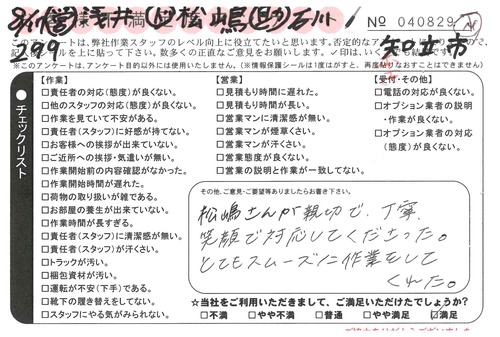 No 040829
知立市
299
このアンケートは、弊社作業スタッフのレベル向上に役立てたいと思います。否定的な
数多くの正直なご意見をお願いします。
※このアンケートは、アンケート目的以外には使用いたしません。(※情報保護シールは1度はがすと、再度貼りなおすことはできません)
チェックリスト
【作業】
□責任者の対応(態度)が良くない。
□他のスタッフの対応(態度)が良くない。
□作業を見ていて不安がある。
□責任者(スタッフ)に好感が持てない。
□お客様への挨拶が出来ていない。
□ご近所への挨拶・気遣いが無い。
□作業開始前の内容確認がなかった。
□作業開始時間が遅れた。
□荷物の取り扱いが雑である。
□お部屋の養生が出来ていない。
□作業時間が長すぎる。
□責任者(スタッフ)に清潔感が無い。
□責任者(スタッフ)が汗くさい。
□トラックが汚い。
□梱包資材が汚い。
□運転が不安(下手)である。
□靴下の履き替えをしてない。
□スタッフにやる気がみられない。
【営業】
□見積もり時間に遅れた。
□見積もり時間が長い。
□営業マンに清潔感が無い。
□営業マンが煙草くさい。
□営業マンが汗くさい。
□営業態度が良くない。
□営業の説明と作業が一致してない。
【受付・その他】
□電話の対応が良くない。
□オプション業者の説明
・作業が良くない。
□オプション業者の対応
(態度)が良くない。
その他、ご意見・ご要望等ありましたらお書き下さい。
松嶋さんが親切で、丁寧、
笑顔で対応してくださった。
とてもスムーズに作業をして
くれた。
☆当社をご利用いただきまして、ご満足いただけたでしょうか?
□不満 □やや不満 □普通 □やや満足 □満足